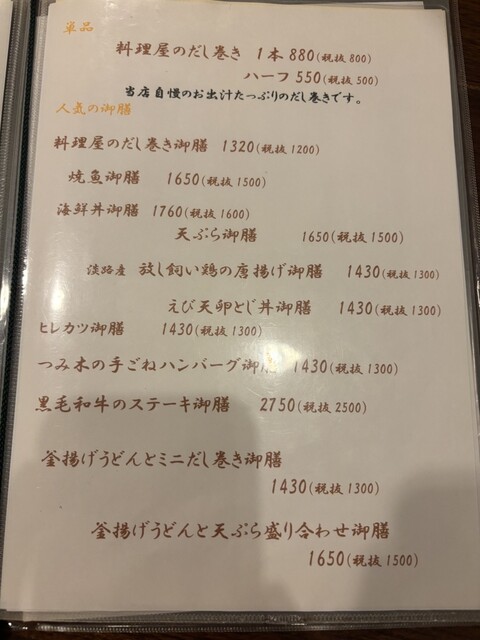 単品
料理屋のだし巻き 1本 880(税抜 800)
ハーフ 550(税抜 500)
当店自慢のお出汁たっぷりのだし巻きです。
人気の御膳
料理屋のだし巻き御膳 1320(税抜 1200)
焼魚御膳 1650(税抜 1500)
海鮮丼御膳 1760(税抜 1600)
天ぷら御膳 1650(税抜 1500)
淡路産 放し飼い鶏の唐揚げ御膳 1430(税抜 1300)
えび天卵とじ丼御膳 1430(税抜 1300)
ヒレカツ御膳 1430(税抜 1300)
つみ木の手ごねハンバーグ御膳 1430(税抜 1300)
黒毛和牛のステーキ御膳 2750(税抜 2500)
釜揚げうどんとミニだし巻き御膳
1430(税抜 1300)
釜揚げうどんと天ぷら盛り合わせ御膳
1650(税抜 1500)